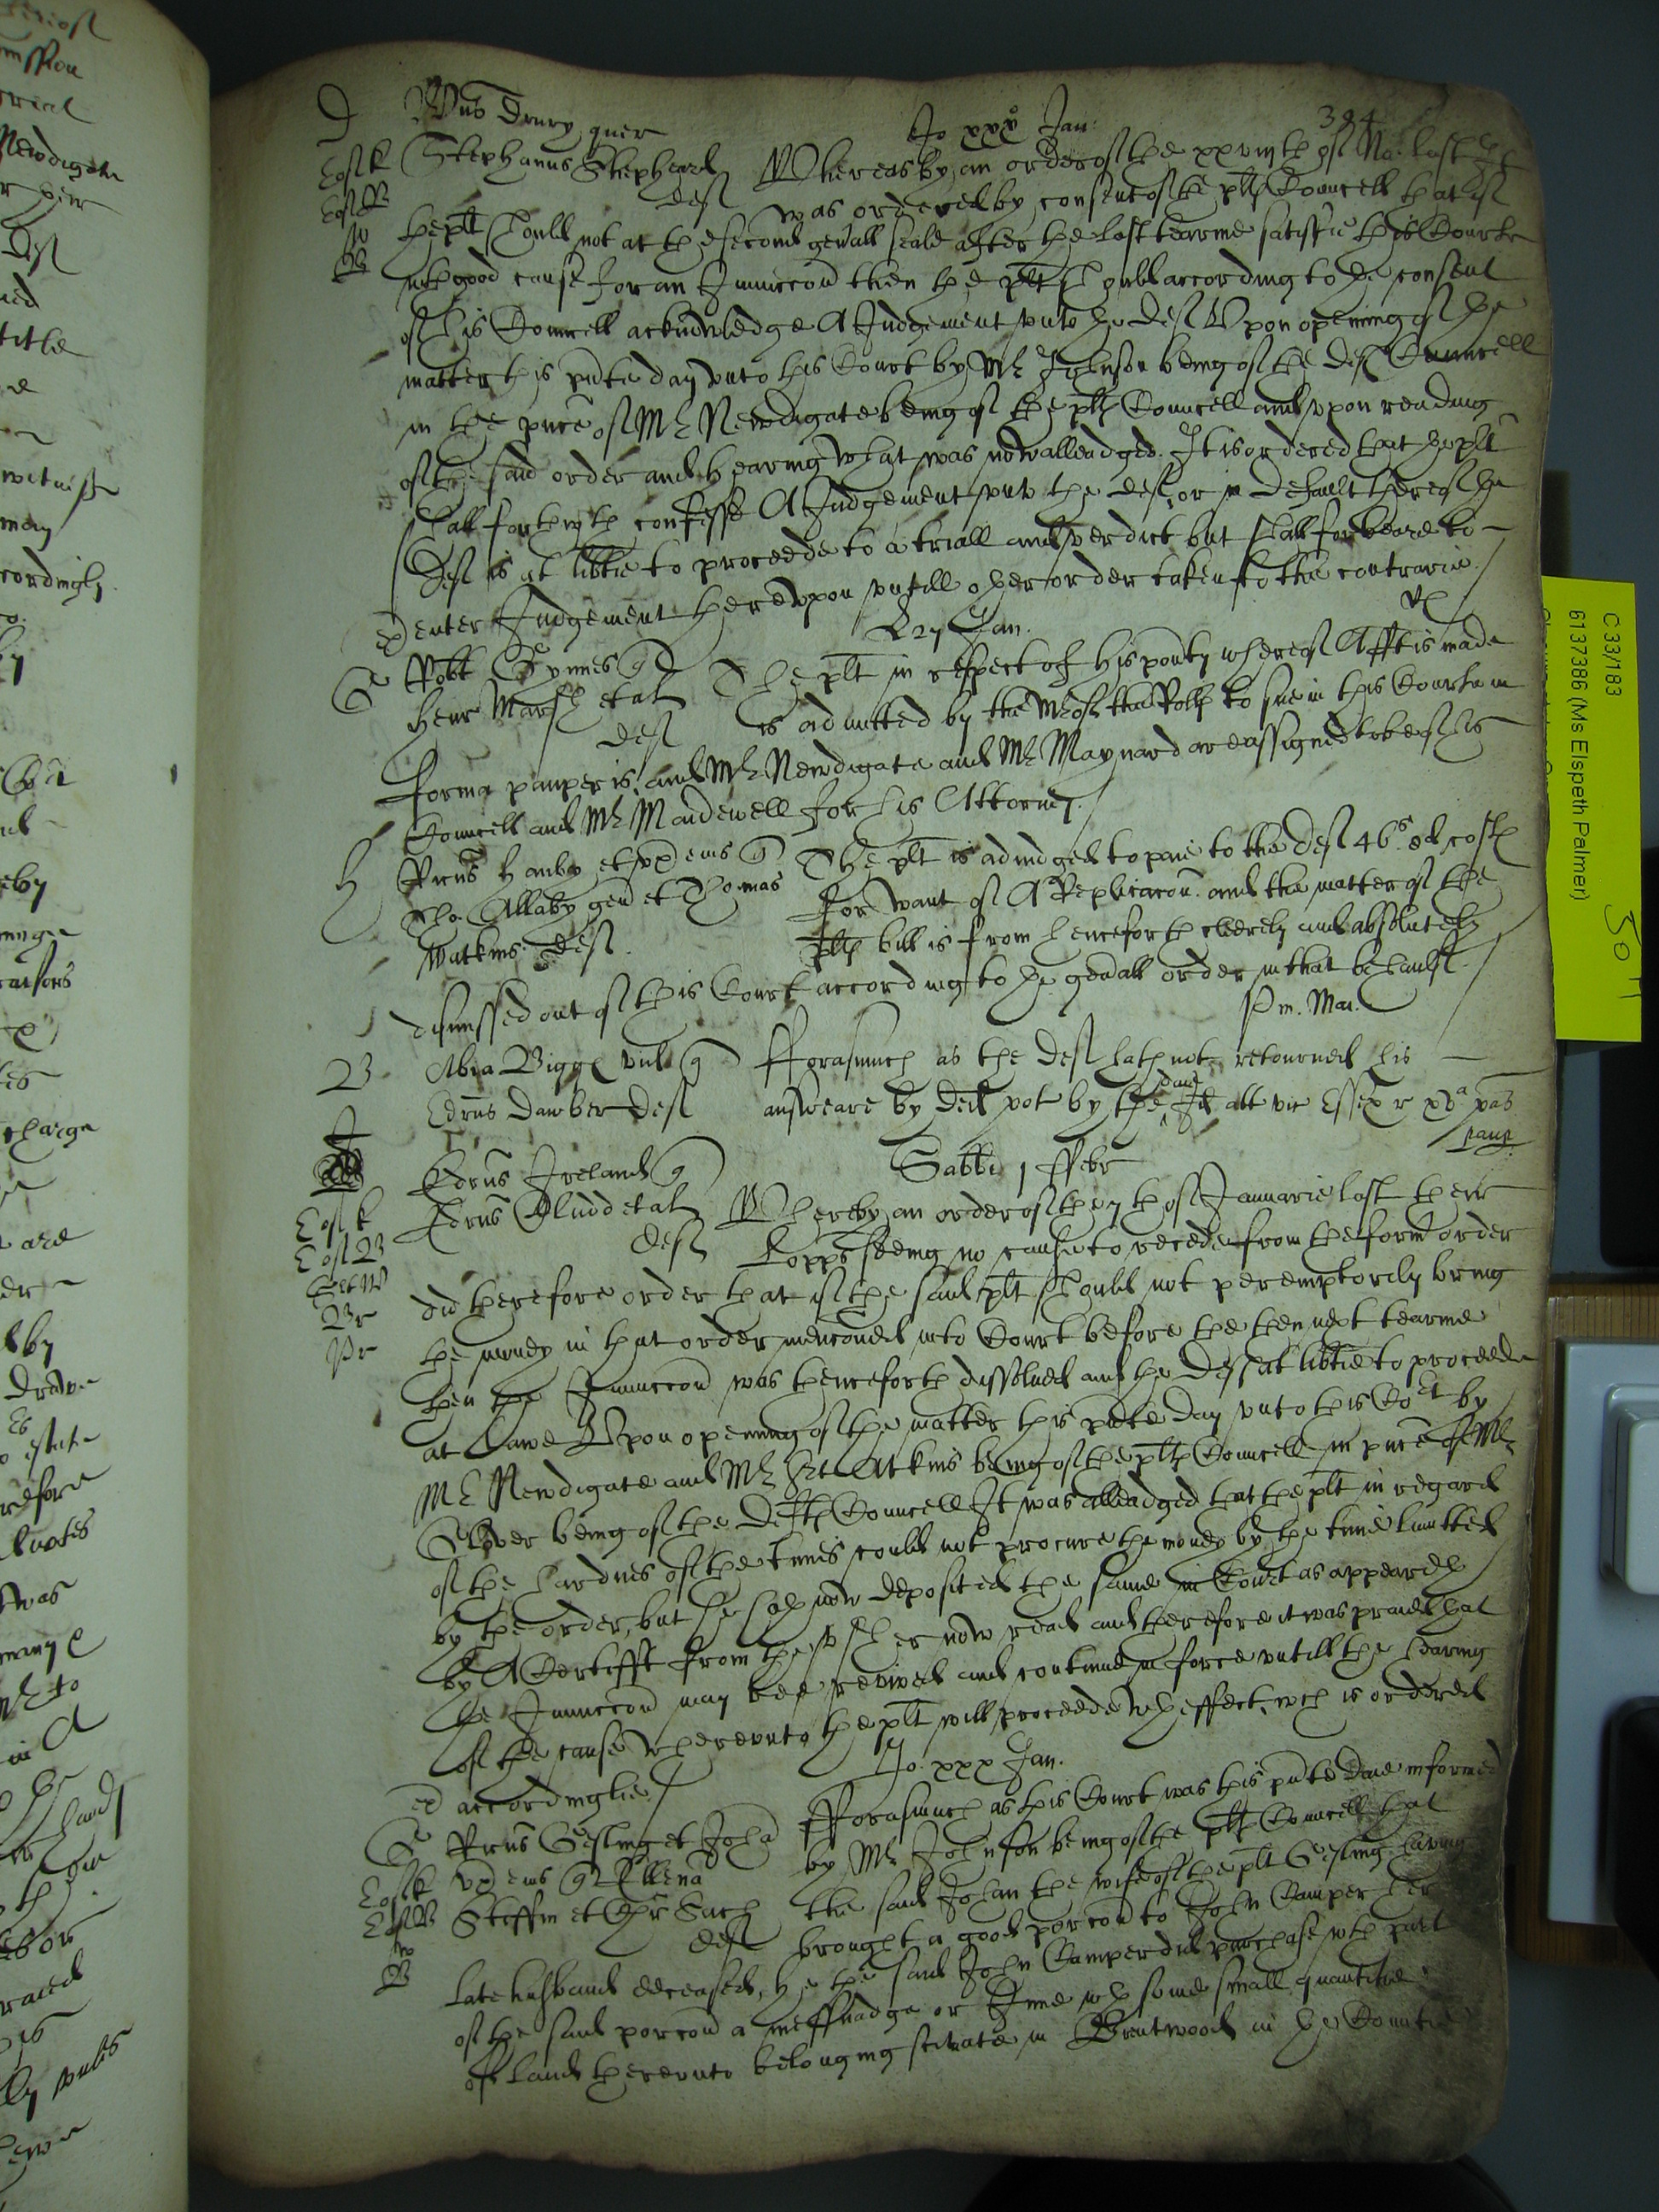 384
D Wm̄s Drury quer
Jo xxx Jan:
Stephanus Shepheard Whereas by an order of the xxviijth of No: last it
def was ordered by consent of the plts Councell that if
the plt should not at the second gen̄all seale after the last tearme satisfie this Courte
with good cause for an Iniunccōn then the plt should according to the consent
of his Councell acknowledge A Iudgement vnto the def Vpon opening of the
matter this pn̄te day vnto this Court by Mr Johnson being of the def Councell
in the pn̄ce of Mr Newdigate being of the plts Councell and vpon reading
of the said order and hearing what was now alleadged. It is ordered that the plt
shall forthwith confesse A Iudgement vnto the def, or in default thereof the
def is at lib̄tie to proceede to a triall and verdict but shall forbeare to
enter Iudgement therevpon vntill other order taken to the contrarie.
27 Jan.
G Rob̄t Gynnes q
Henr Marsh et al The plt in respect of his pou̅ty whereof Afft is made
def is admitted by the Mr of the Rolls to sue in this Courte in
forma pauperis. and Mr Newdigate and Mr Maynard are assigned to be of his
Councell and Mr Mandewell for his Attorny.
H Frn̄s Hanby et vx eius q The plt is adiudged to paie to the def 46s 8d costs
Tho: Allaby gen̄ et Thomas for want of A Replicacōn. and the matter of the
Watkins. def. plts bill is from henceforth cleerely and absolutely
dismissed out of this Court according to the gen̄all order in that behaulf.
Pm. Mar.
B Abia Bigge vid q fforasmuch as the def hath not retourned his
Edrūs Dawber def answeare by ded pot by the daie Id att vic Essex r xva pas
paup
Sabb̄i 1 ffebr
J Edrūs Ireland q
Edrūs Cludd et al Whereby an order of the 7th of Januarie last their
def Lopps seeing no cause to recede from the form̄ order
did therefore order that if the said plt should not peremptorily bring
the money in that order mencōned into Court before the then next tearme
then the Iniunccōn was thenceforth dissolued and the def at lib̄tie to proceede
at Lawe Vpon opening of the matter this pn̄te day vnto this Cort by
Mr Newdigate and Mr Srt Atkins being of the plts Councell in pn̄ce of Mr
Glover being of the Defts Councell It was alleadged that the plt in regard
of the hardnes of the times could not procure the money by the time limitted
by the order, but he hath now deposited the same in Court as appeareth
by A Certifft from the vsher now read and therefore it was praied that
the Iniunccōn may bee revived and continue in force vntill the hearing
of the cause wherevnto the plt will proceede wth effect, wch is ordered
accordinglie
Jo. xxx Jan.
G Frn̄s Gesling et Joh̄a fforasmuch as this Court was this pn̄te daie informed
vx eius q Ellena by Mr Johnson being of the plts Councell that
Steffin et Chr̄ Sach the said Johan the wife of the plt Gesling having
def brought a good porcōn to John Camper her
late husband deceased, he the said John Camper did purchase with part
of the said porcōn a messuadge or Inne wth some small quantitie
of land therevnto belonging scituate in Brentwood in the Countie
C 33/183
6137386 (Ms Elspeth Palmer)